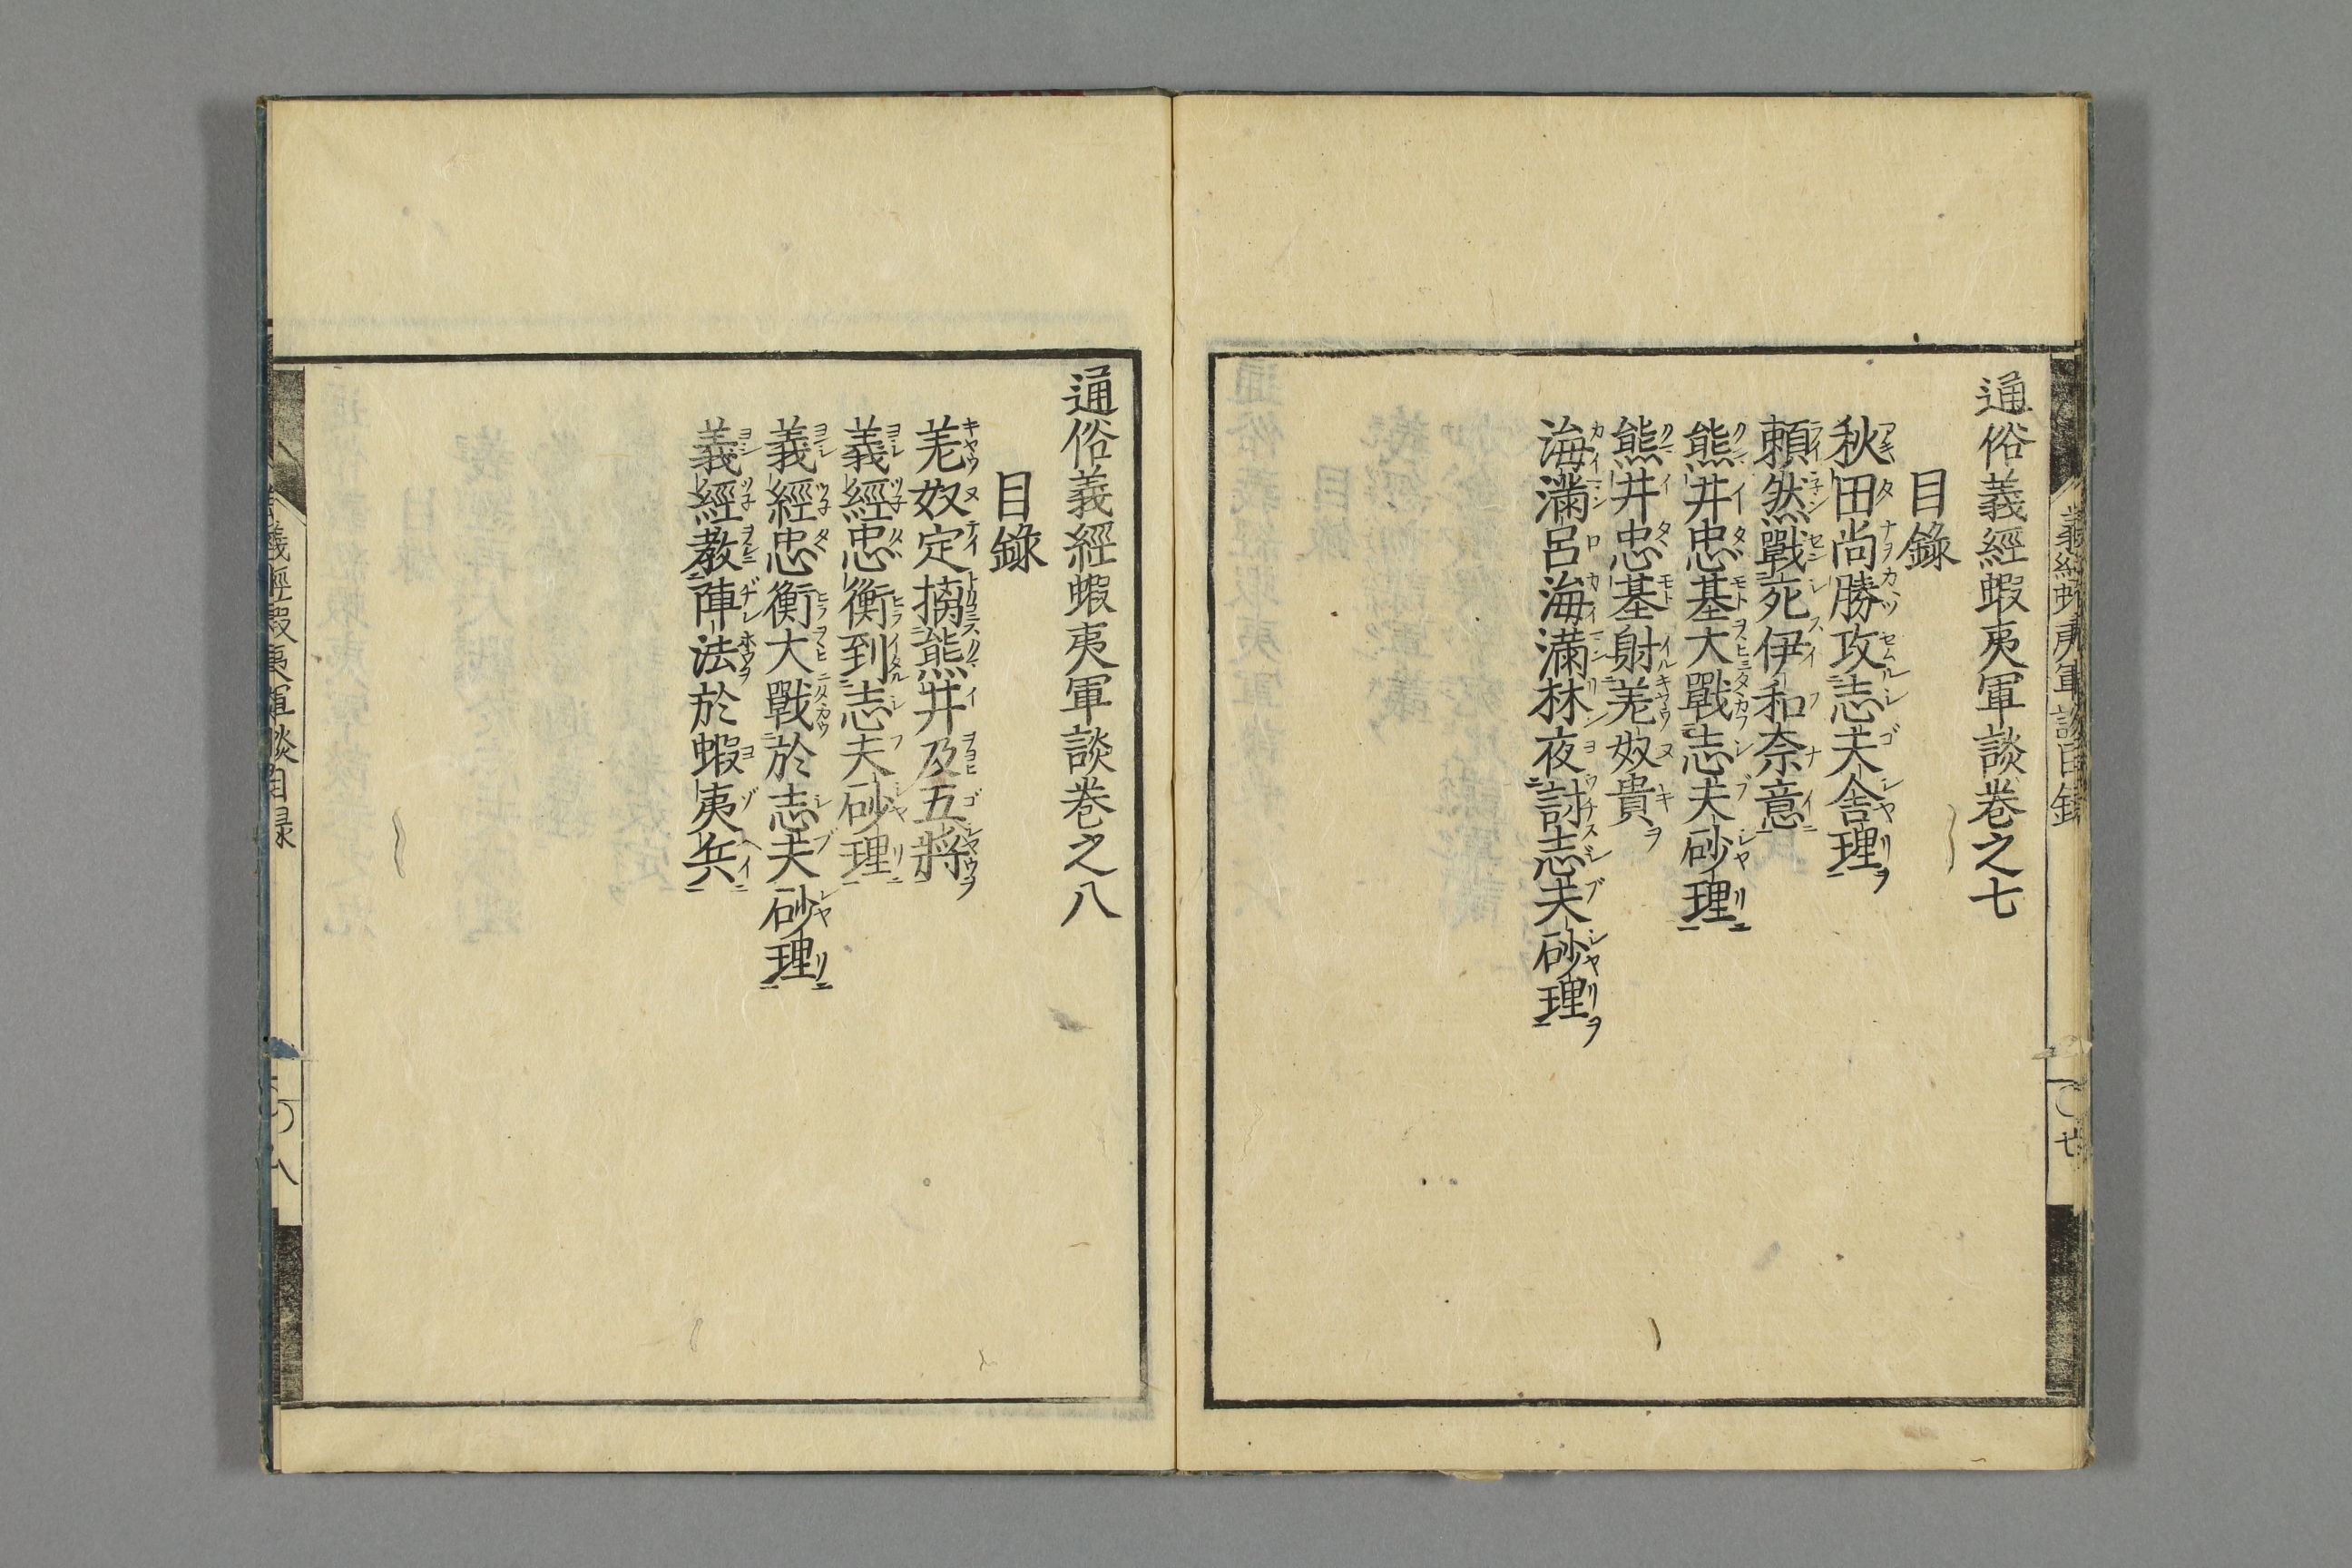 通俗義經蝦夷軍談巻之七
目錄
秋田尚勝攻志夫舎理
頼然戰死伊和奈意
熊井忠基大戰志夫砂理
熊井忠基射羌奴貴
海滿呂海滿林夜討志夫砂理
通俗義經蝦夷軍談巻之八
目錄
羌奴定擒熊井及五將
義經忠衡到志夫砂理
義經忠衡大戰於志夫砂理
義經教陣法於蝦夷兵